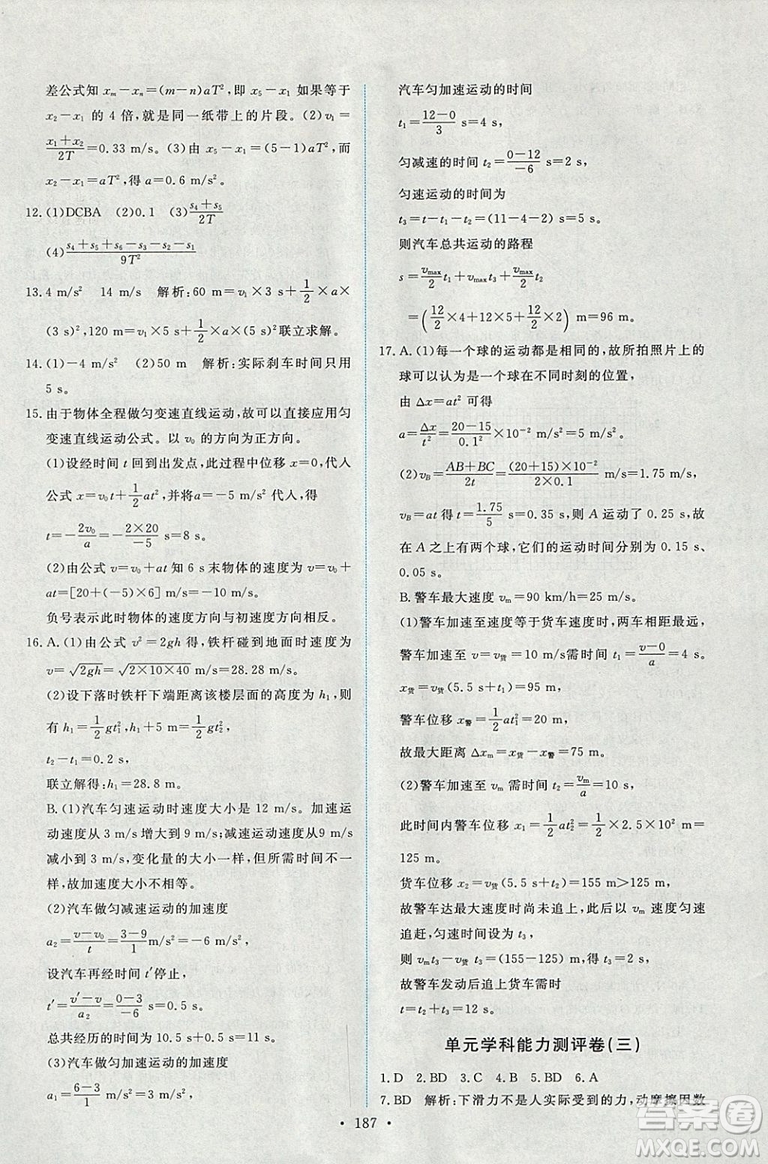 差公式知 xₘ－x₁＝(m－n)aT²,即 x₅－x₁ 如果等于
x₂－x₁ 的 4 倍,就是同一纸带上的片段。(2)v₁＝
(x₁＋x₂)/2T＝0.33 m/s。(3)由 x₅－x₁＝(5－1)aT²,而
x₂－x₁＝aT²,即 a＝0.6 m/s²。
12. (1)DCBA (2)0.1 (3)(s₄＋s₅)/2T
(4)(s₄＋s₅＋s₆－s₁－s₂－s₃)/9T²
13. 4 m/s² 14 m/s 解析:60 m＝v₁×3 s＋1/2×a×
(3 s)²,120 m＝v₁×5 s＋1/2×a×(5 s)²联立求解。
14. (1)－4 m/s² (2)50 m 解析:实际刹车时间只用
5 s。
15. 由于物体全程做匀变速直线运动,故可以直接应用匀
变速直线运动公式。以 v₀ 的方向为正方向。
(1)设经时间 t 回到出发点,此过程中位移 x＝0,代入
公式 x＝v₀t＋1/2at²,并将 a＝－5 m/s² 代入,得
t＝－2v₀/a＝－(2×20)/(－5) s＝8 s。
(2)由公式 v＝v₀＋at 知 6 s 末物体的速度为 v＝v₀＋
at＝[20＋(－5)×6] m/s＝－10 m/s。
负号表示此时物体的速度方向与初速度方向相反。
16. A. (1)由公式 v²＝2gh 得,铁杆碰到地面时速度为
v＝√2gh＝√2×10×40 m/s＝28.28 m/s。
(2)设下落时铁杆下端距离该楼层面的高度为 h₁,则
有 h₁＝1/2gt₁²,h₁＋5 m＝1/2gt₂²,
t₂－t₁＝0.2 s,
联立解得:h₁＝28.8 m。
B. (1)汽车匀速运动时速度大小是 12 m/s。加速运
动速度从3 m/s 增大到 9 m/s;减速运动速度从9 m/s
减小到 3 m/s,变化量的大小一样,但所需时间不一
样,故加速度大小不相等。
(2)汽车做匀减速运动的加速度
a₂＝(v－v₀)/t＝(3－9)/1 m/s²＝－6 m/s²。
设汽车再经时间 t′停止,
t′＝(v′－v)/a₂＝(0－3)/(－6) s＝0.5 s。
总共经历的时间为 10.5 s＋0.5 s＝11 s。
(3)汽车做匀加速运动的加速度
a₁＝(6－3)/1 m/s²＝3 m/s²。
汽车匀加速运动的时间
t₁＝(12－0)/3 s＝4 s,
匀减速的时间 t₂＝(0－12)/(－6) s＝2 s。
匀速运动的时间为
t₃＝t－t₁－t₂＝(11－4－2) s＝5 s。
则汽车总共运动的路程
s＝vₘₐₓ/2 t₁＋vₘₐₓt₃＋vₘₐₓ/2 t₂
＝(12/2×4＋12×5＋12/2×2) m＝96 m。
17. A. (1)每一个球的运动都是相同的,故所拍照片上的
球可以认为是一个球在不同时刻的位置,
由 Δx＝at² 可得
a＝Δx/t²＝(20－15)/0.1²×10⁻² m/s²＝5 m/s²。
(2)v_B＝(AB＋BC)/2t＝(20＋15)×10⁻²/(2×0.1) m/s＝1.75 m/s,
v_B＝at 得 t＝1.75/5 s＝0.35 s,则 A 运动了 0.25 s,故
在 A 球上方还有两个球,它们的运动时间分别为 0.15 s、
0.05 s。
B. 警车最大速度 vₘ＝90 km/h＝25 m/s。
(1)警车加速至速度等于货车速度时,两车间距最大。
警车加速至 v＝v货＝10 m/s时需时间 t₁＝(v－0)/a＝4 s。
x货＝v货(5.5 s＋t₁)＝95 m,
警车位移 x警＝1/2at₁²＝20 m,
故最大距离 Δxₘ＝x货－x警＝75 m。
(2)警车加速至 vₘ＝25 m/s 时需时间 t₂＝vₘ/a＝10 s,
此时间内警车位移 x₁＝1/2at₂²＝1/2×2.5×10² m＝
125 m。
货车位移 x₂＝v货(5.5 s＋t₂)＝155 m＞125 m,
故警车达最大速度时尚未追上,故以最大速度匀速
追赶,令匀速时间为 t₃,
则 vₘt₃－v货t₃＝(155－125) m,得 t₃＝2 s,
故警车发动后追上货车需时
t＝t₂＋t₃＝12 s。
单元学科能力测评卷(三)
1. D 2. BD 3. C 4. BD 5. BD 6. A
7. BD 解析:下滑力不是人实际受到的力,动摩擦因数
187
答案圈
MXQE.COM